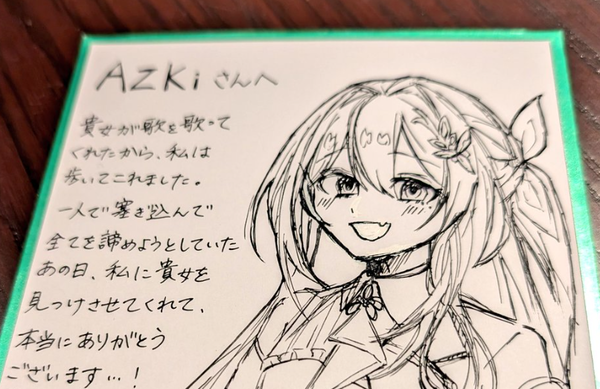 AZKiさんへ
貴女が歌を歌って
くれたから、私は
歩いてこれました。
一人で塞ぎ込んで
全てを諦めようとしていた
あの日、私に貴女を
見つけさせてくれて、
本当にありがとう
ございます…!